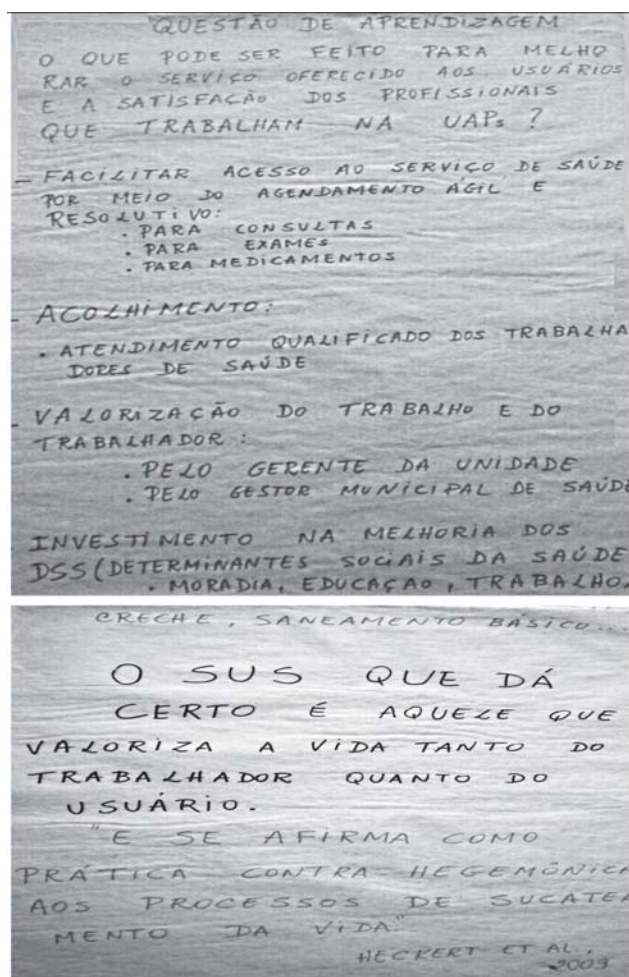 QUESTÃO DE APRENDIZAGEM
O QUE PODE SER FEITO PARA MELHO
RAR O SERVIÇO OFERECIDO AOS USUÁRIOS
E A SATISFAÇÃO DOS PROFISSIONAIS
QUE TRABALHAM NA UAPs ?
- FACILITAR ACESSO AO SERVIÇO DE SAÚDE
POR MEIO DO AGENDAMENTO ÁGIL E
RESOLUTIVO:
. PARA CONSULTAS
. PARA EXAMES
. PARA MEDICAMENTOS
- ACOLHIMENTO:
. ATENDIMENTO QUALIFICADO DOS TRABALHA
DORES DE SAÚDE
- VALORIZAÇÃO DO TRABALHO E DO
TRABALHADOR :
. PELO GERENTE DA UNIDADE
. PELO GESTOR MUNICIPAL DE SAÚDE
INVESTIMENTO NA MELHORIA DOS
DSS (DETERMINANTES SOCIAIS DA SAÚDE
. MORADIA, EDUCAÇÃO, TRABALHO,
CRECHE, SANEAMENTO BÁSICO...
O SUS QUE DÁ
CERTO É AQUELE QUE
VALORIZA A VIDA TANTO DO
TRABALHADOR QUANTO DO
USUÁRIO.
"E SE AFIRMA COMO
PRÁTICA CONTRA-HEGEMÔNICA
AOS PROCESSOS DE SUCATEA
MENTO DA VIDA."
HECKERT ET AL,
2009